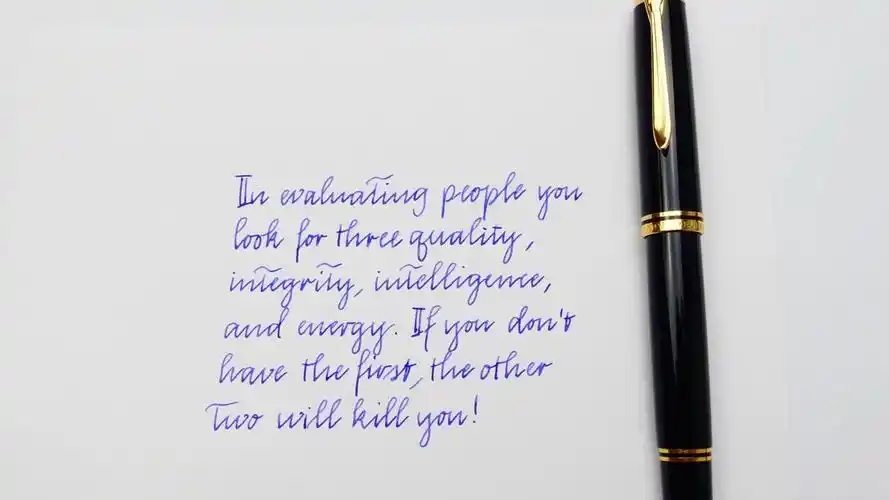 In evaluating people you
look for three quality,
integrity, intelligence,
and energy. If you don't
have the first, the other
Two will kill you!